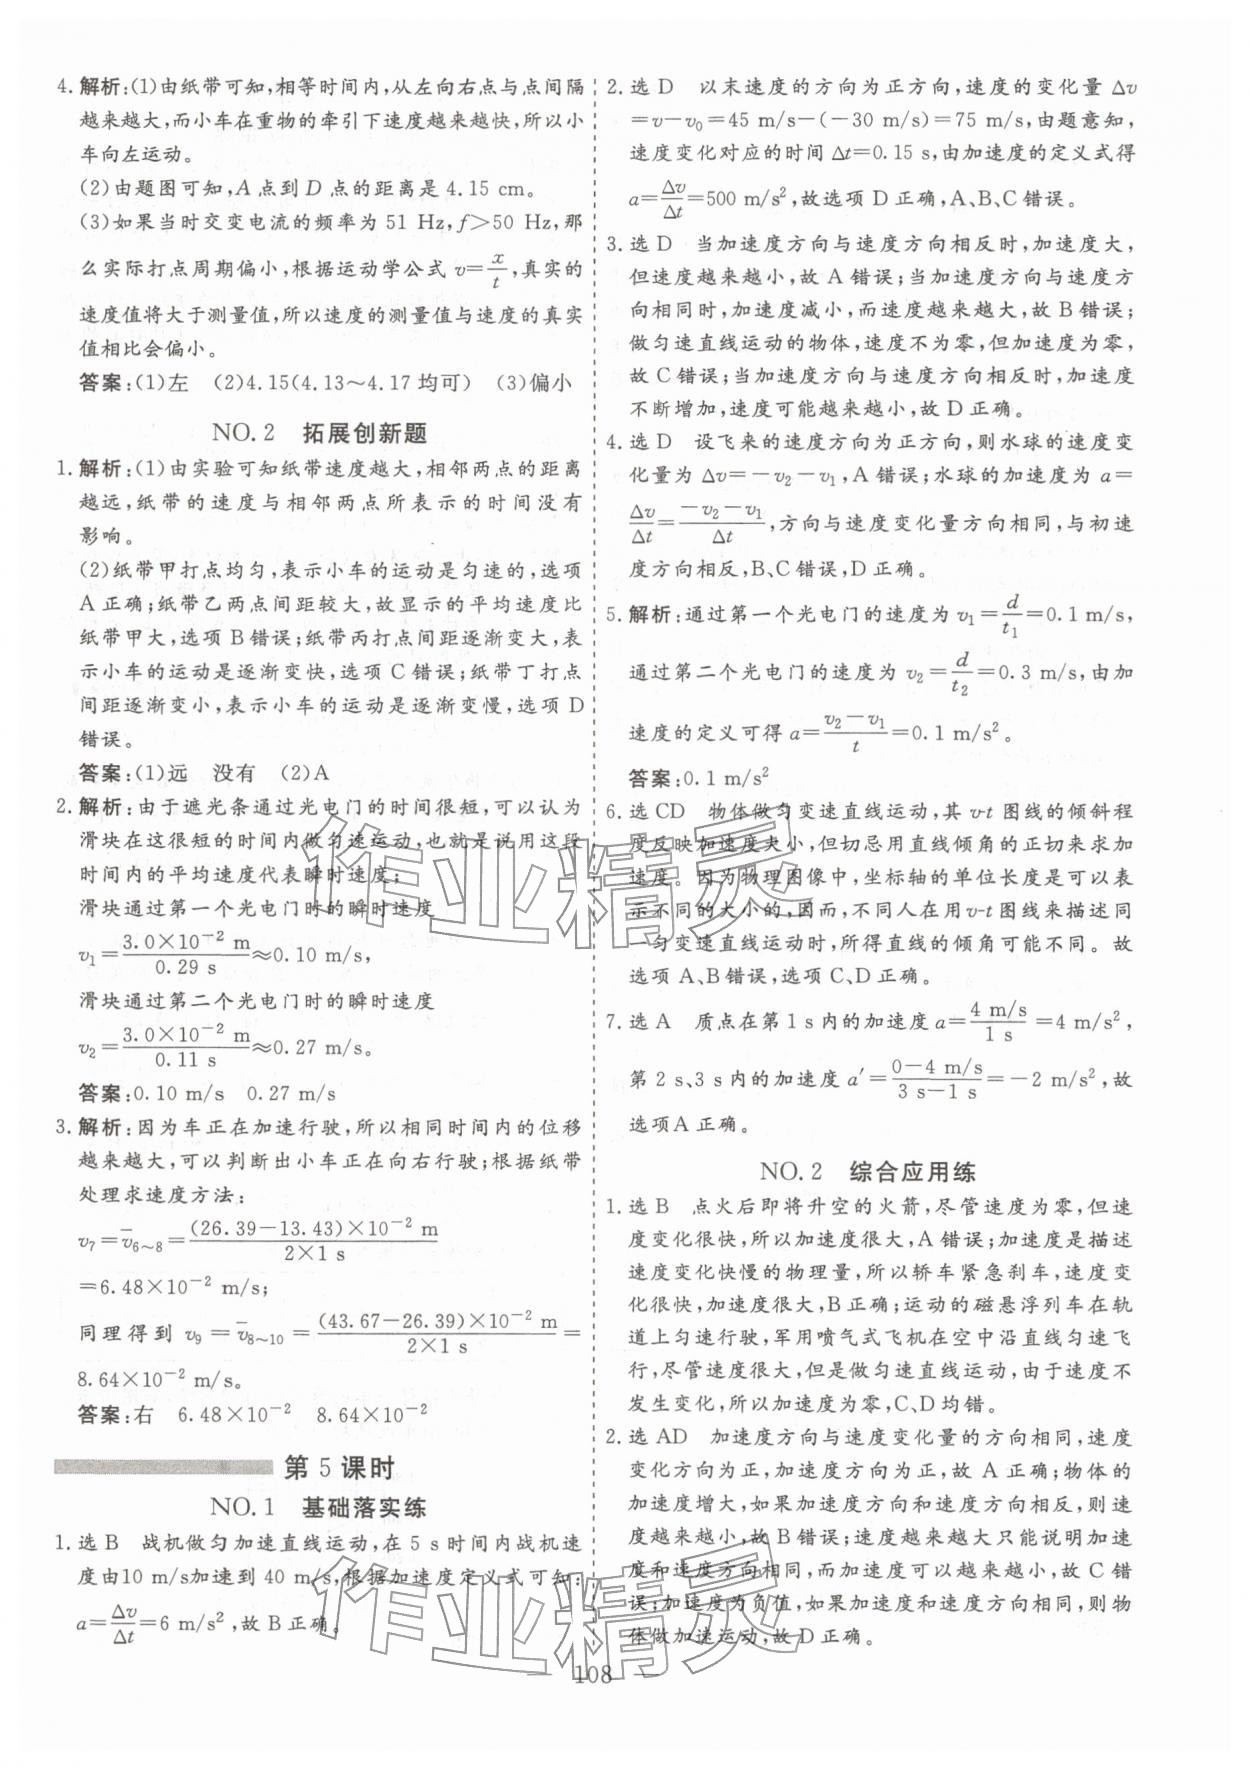 4. 解析:(1)由纸带可知,相等时间内,从左向右点与点间隔
越来越大,而小车在重物的牵引下速度越来越快,所以小
车向左运动。
(2)由题图可知,A 点到 D 点的距离是 4.15 cm。
(3)如果当时交变电流的频率为 51 Hz,f>50 Hz,那
么实际打点周期偏小,根据运动学公式 v=x/t,真实的
速度值将大于测量值,所以速度的测量值与速度的真实
值相比会偏小。
答案:(1)左 (2)4.15(4.13~4.17 均可) (3)偏小
NO.2 拓展创新题
1. 解析:(1)由实验可知纸带速度越大,相邻两点的距离
越远,纸带的速度与相邻两点所表示的时间没有
影响。
(2)纸带甲打点均匀,表示小车的运动是匀速的,选项
A 正确;纸带乙两点间距较大,故显示的平均速度比
纸带甲大,选项 B 错误;纸带丙打点间距逐渐变大,表
示小车的运动是逐渐变快,选项 C 错误;纸带丁打点
间距逐渐变小,表示小车的运动是逐渐变慢,选项 D
错误。
答案:(1)远 没有 (2)A
2. 解析:由于遮光条通过光电门的时间很短,可以认为
滑块在这很短的时间内做匀速运动,也就是说用这段
时间内的平均速度代表瞬时速度;
滑块通过第一个光电门时的瞬时速度
v₁=3.0×10⁻² m/0.29 s≈0.10 m/s,
滑块通过第二个光电门时的瞬时速度
v₂=3.0×10⁻² m/0.11 s≈0.27 m/s。
答案:0.10 m/s 0.27 m/s
3. 解析:因为车正在加速行驶,所以相同时间内的位移
越来越大,可以判断出小车正在向右行驶;根据纸带
处理求速度方法:
v₇=v̄₆~₈=(26.39-13.43)×10⁻² m/2×1 s
=6.48×10⁻² m/s;
同理得到 v₉=v̄₈~₁₀=(43.67-26.39)×10⁻² m/2×1 s=
8.64×10⁻² m/s。
答案:右 6.48×10⁻² 8.64×10⁻²
第 5 课时
NO.1 基础落实练
1. 选 B 战机做匀加速直线运动,在 5 s 时间内战机速
度由10 m/s加速到 40 m/s,根据加速度定义式可知:
a=Δv/Δt=6 m/s²,故 B 正确。
2. 选 D 以末速度的方向为正方向,速度的变化量 Δv
=v-v₀=45 m/s-(-30 m/s)=75 m/s,由题意知,
速度变化对应的时间 Δt=0.15 s,由加速度的定义式得
a=Δv/Δt=500 m/s²,故选项 D 正确,A、B、C 错误。
3. 选 D 当加速度方向与速度方向相反时,加速度大,
但速度越来越小,故 A 错误;当加速度方向与速度方
向相同时,加速度减小,而速度越来越大,故 B 错误;
做匀速直线运动的物体,速度不为零,但加速度为零,
故 C 错误;当加速度方向与速度方向相反时,加速度
不断增加,速度可能越来越小,故 D 正确。
4. 选 D 设飞来的速度方向为正方向,则水球的速度变
化量为 Δv=-v₂-v₁,A 错误;水球的加速度为 a=
Δv/Δt=-v₂-v₁/Δt,方向与速度变化量方向相同,与初速
度方向相反,B、C 错误,D 正确。
5. 解析:通过第一个光电门的速度为 v₁=d/t₁=0.1 m/s,
通过第二个光电门的速度为 v₂=d/t₂=0.3 m/s,由加
速度的定义可得 a=v₂-v₁/t=0.1 m/s²。
答案:0.1 m/s²
6. 选 CD 物体做匀变速直线运动,其 v-t 图线的倾斜程
度反映加速度大小,但切忌用直线倾角的正切来求加
速度。因为物理图像中,坐标轴的单位长度是可以表
示不同的大小的,因而,不同人在用v-t 图线来描述同
一匀变速直线运动时,所得直线的倾角可能不同。故
选项 A、B 错误,选项 C、D 正确。
7. 选 A 质点在第 1 s 内的加速度 a=4 m/s/1 s=4 m/s²,
第 2 s、3 s 内的加速度 a′=0-4 m/s/3 s-1 s=-2 m/s²,故
选项 A 正确。
NO.2 综合应用练
1. 选 B 点火后即将升空的火箭,尽管速度为零,但速
度变化很快,所以加速度很大,A 错误;加速度是描述
速度变化快慢的物理量,所以轿车紧急刹车,速度变
化很快,加速度很大,B 正确;运动的磁悬浮列车在轨
道上匀速行驶,军用喷气式飞机在空中沿直线匀速飞
行,尽管速度很大,但是做匀速直线运动,由于速度不
发生变化,所以加速度为零,C、D 均错。
2. 选 AD 加速度方向与速度变化量的方向相同,速度
变化方向为正,加速度方向为正,故 A 正确;物体的
加速度增大,如果加速度方向和速度方向相反,则速
度越来越小,故 B 错误;速度越来越大只能说明加速
度和速度方向相同,而加速度可以越来越小,故 C 错
误;加速度为负值,如果加速度和速度方向相同,则物
体做加速运动,故 D 正确。
— 108 —
作业精灵
作业精灵